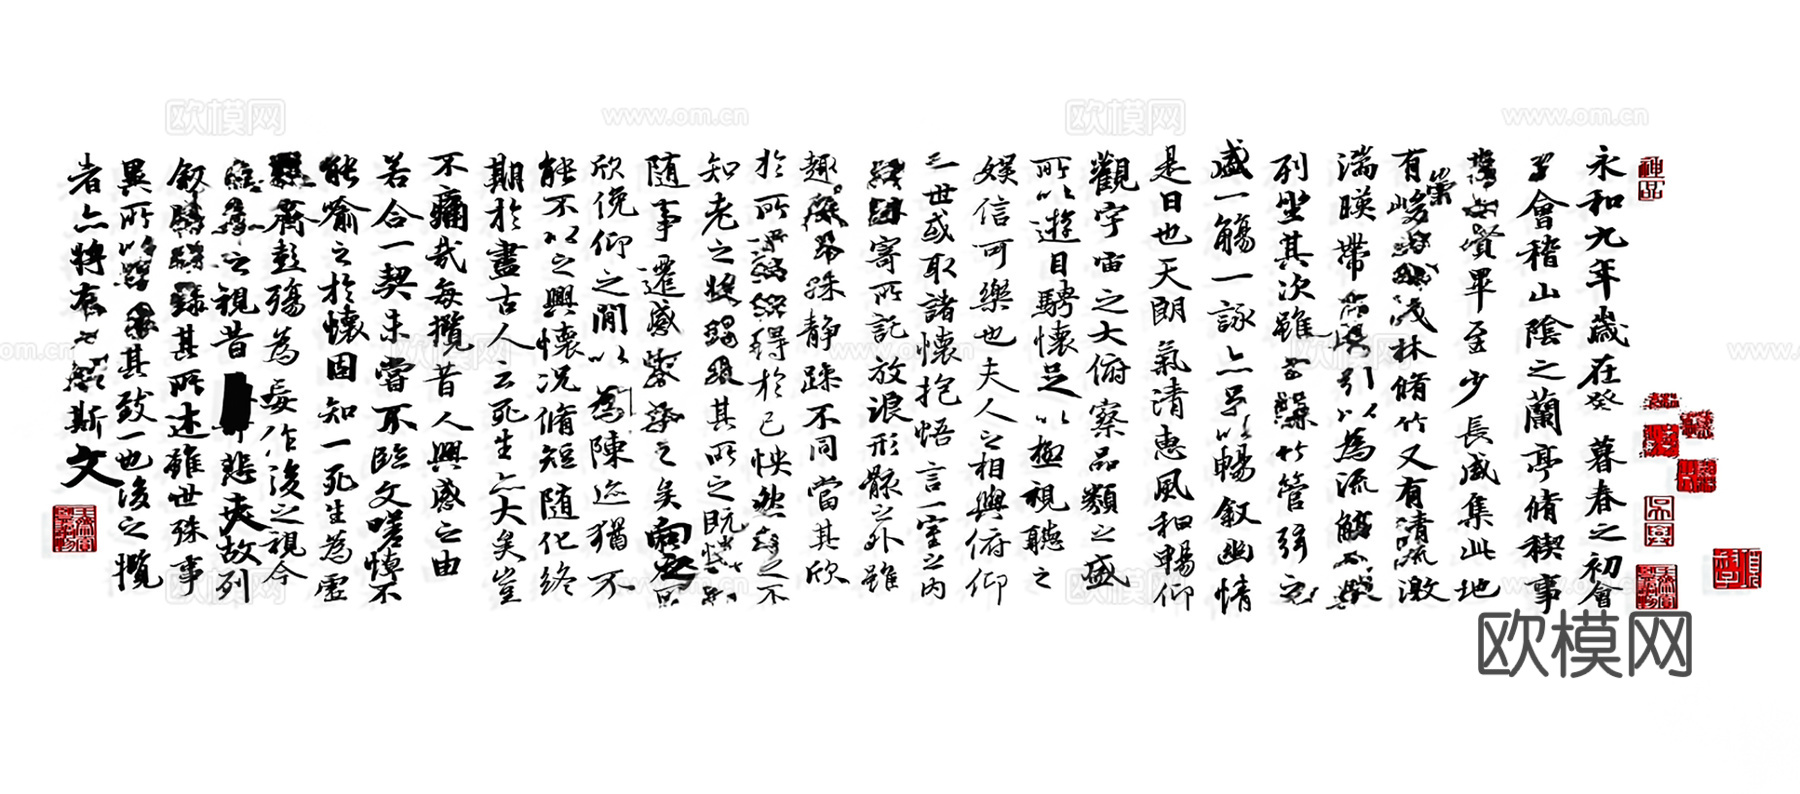 永和九年歲在癸 暮春之初會
會稽山陰之蘭亭脩稧事
賢畢至少長咸集此地
有峻 崇 淺林脩竹又有清流激
湍暎帶 引以為流觴
列坐其次雖 竹管弦
盛一觴一詠亦 以暢敘幽情
是日也天朗氣清惠風和暢仰
觀宇宙之大俯察品類之盛
所以遊目騁懷足以極視聽之
娛信可樂也夫人之相與俯仰
一世或取諸懷抱悟言一室之內
寄所託放浪形骸之外雖
趣 殊靜躁不同當其欣
於所 得於己怏然 不
知老之將 其所之既
随事遷感 之矣向
欣俛仰之間以為陳迹猶不
能不以之興懷况脩短随化終
期於盡古人云死生亦大矣豈
不痛哉每攬昔人興感之由
若合一契未嘗不臨文嗟悼不
能喻之於懷固知一死生為虛
齊彭殤為妄作後之視今
之視昔 悲夫故列
敘 錄其所述雖世殊事
異所以 其致一也後之攬
者亦將有 斯文
神品
欧模网
www.om.cn